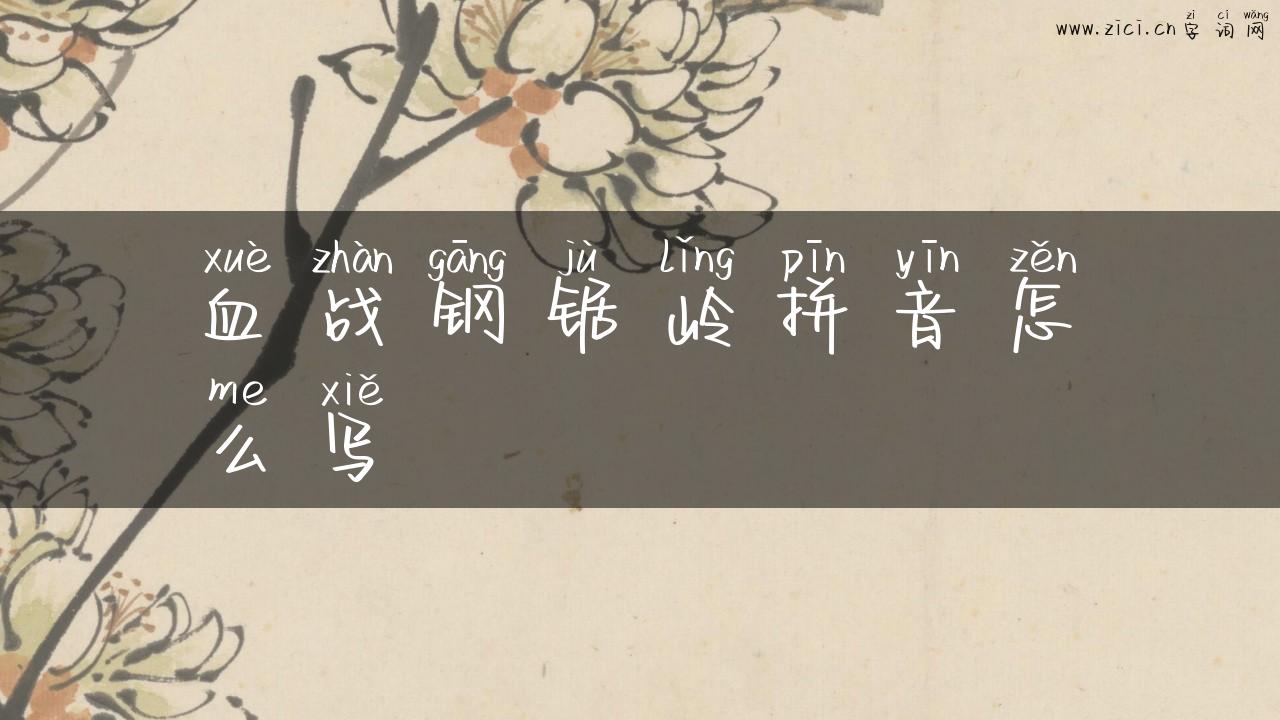 zì cí wǎng
www.zici.cn 字 词 网
xuè zhàn gāng jù lǐng pīn yīn zěn
血 战 钢 锯 岭 拼 音 怎
me xiě
么 写